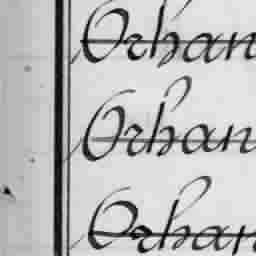 Orhan
Orhan
Orhan